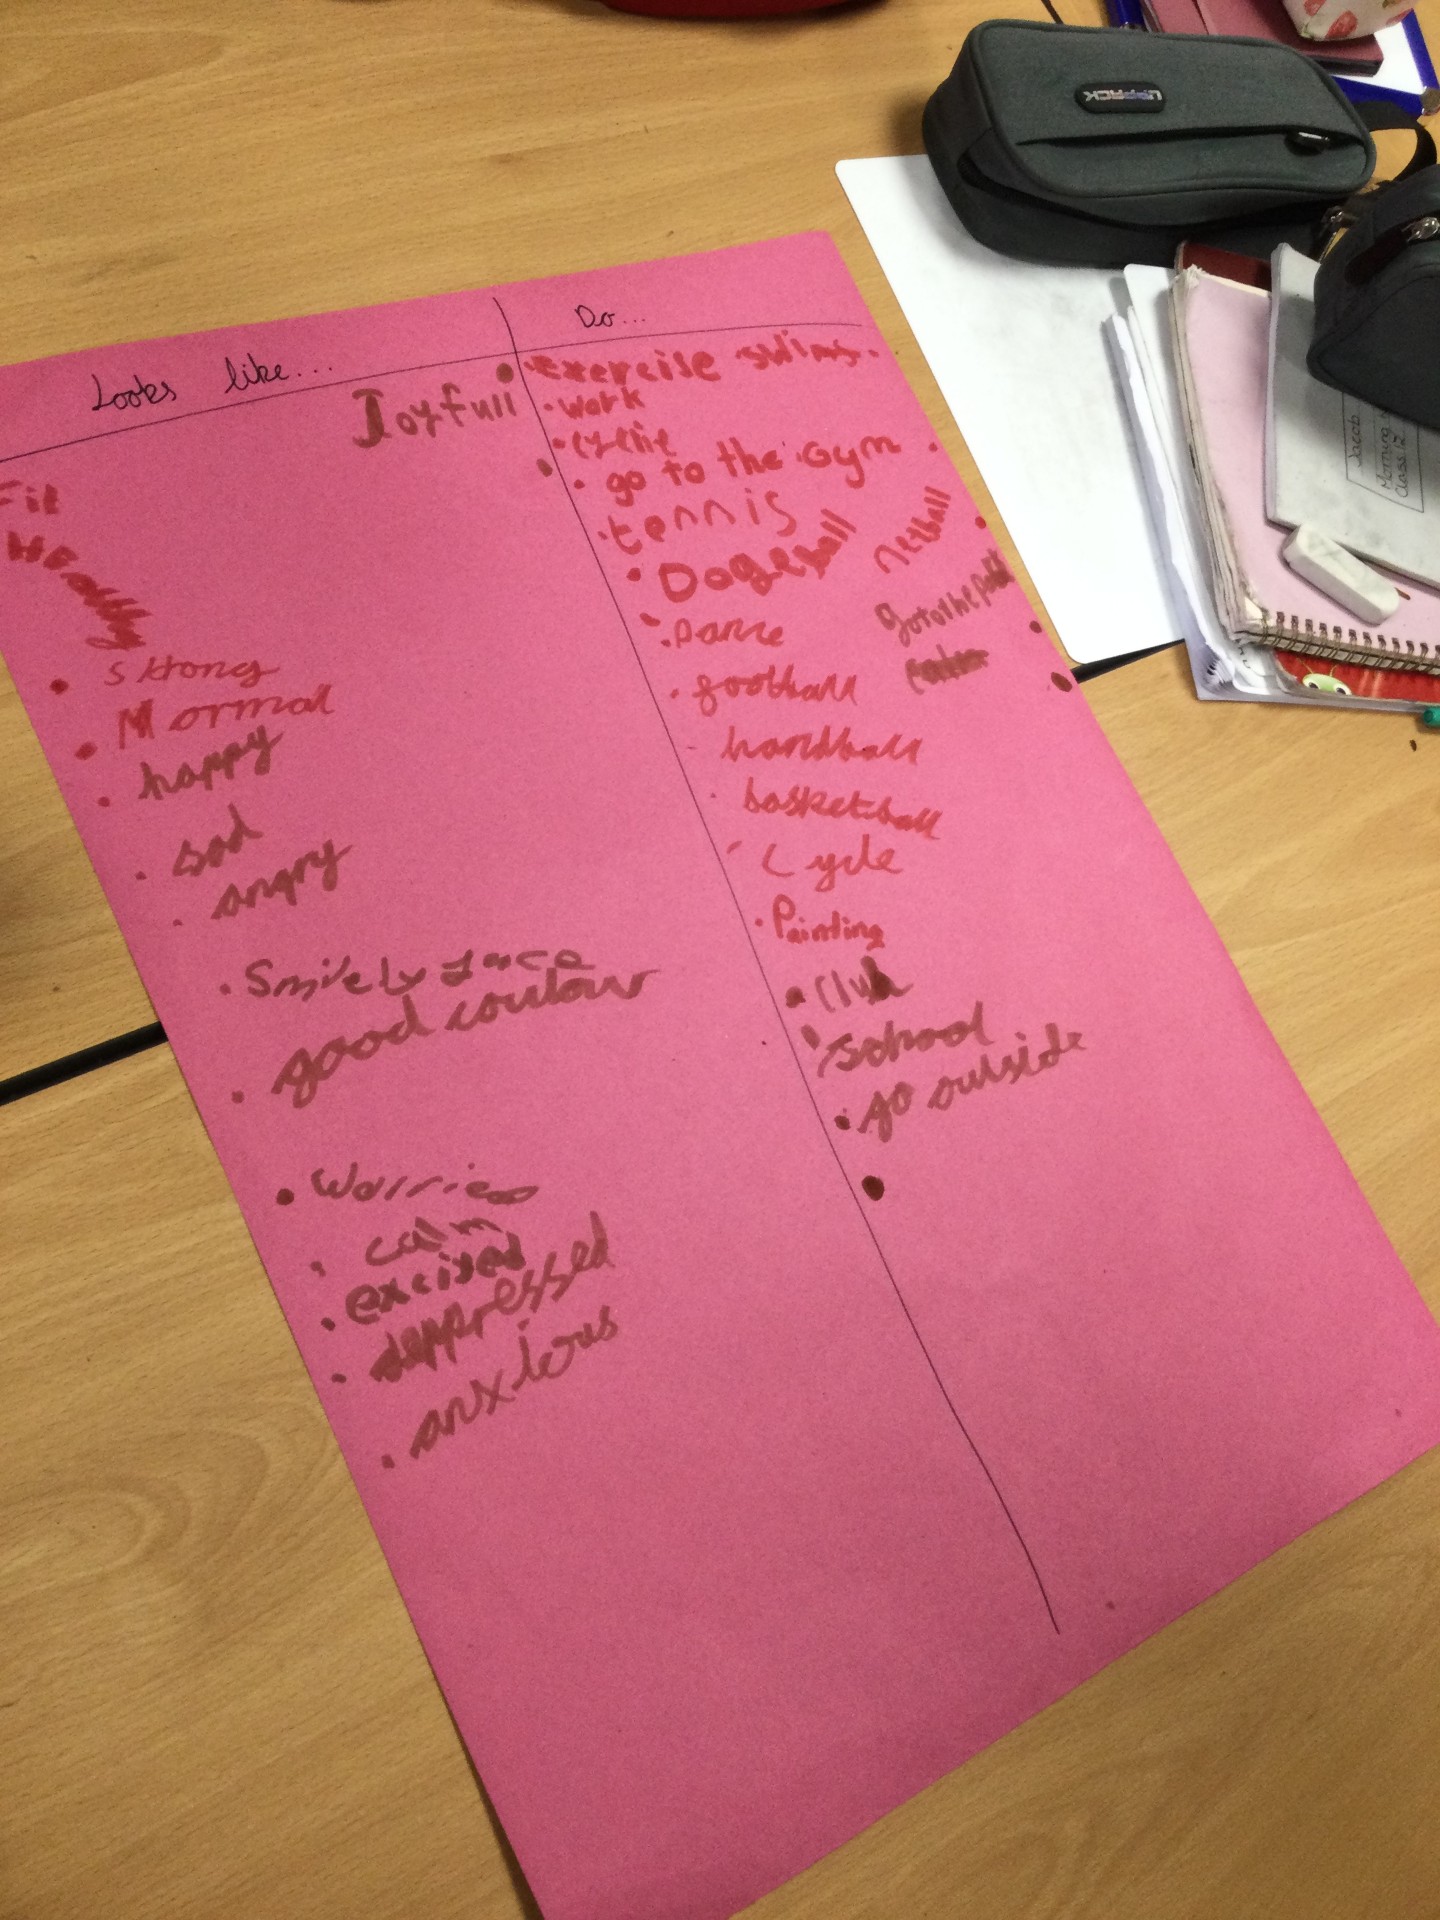 Looks like...
Joyfull
Fit
HEalthy
Strong
Normal
happy
sad
angry
Smilely face
good coulour
Worried
calm
excited
deppressed
anxious
Do...
Exercise swims
work
cycle
go to the gym
tennis
Dogeball
netball
Dance
go to the park
football
handball
basketball
Cycle
Painting
Club
school
go outside
UNPACK
Jacob
Morning
Class 12